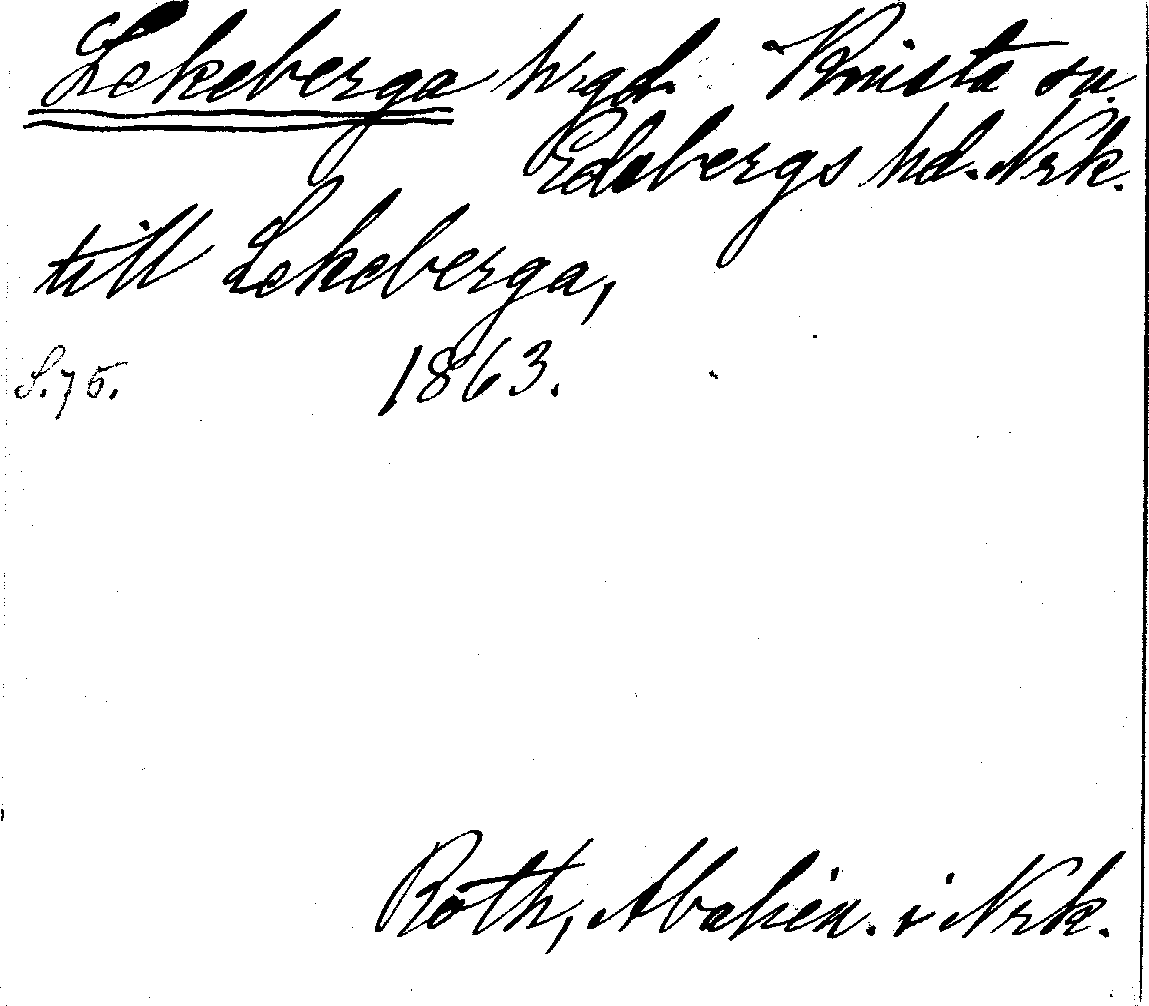 Lekeberga hrgd. Knista sn
Edsbergs hd. Nrk.
till Lekeberga,
S. 75. 1863.
Roth, Abahén. i Nrk.